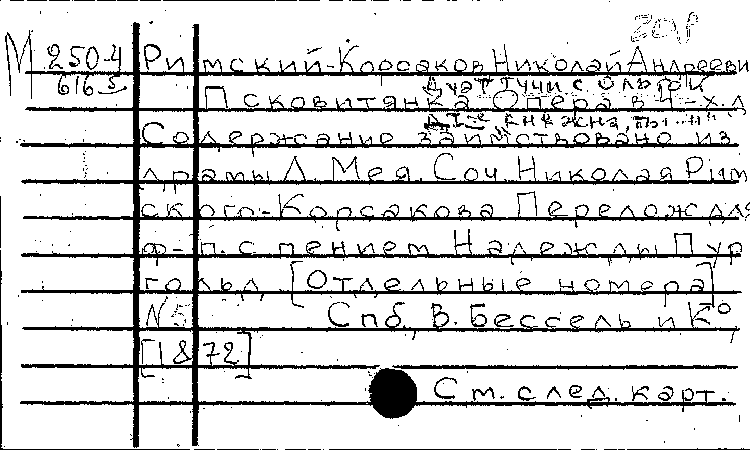 М 250-4 Римский-Корсаков Николай Андрееви
616 5 Дуэт Тучи с Ольгой
Псковитянка Опера в 4-х.д
Д. I-е „Княжна, ты
Содержание заимствовано из
драмы Л. Мея. Соч. Николая Рим
ского-Корсакова Перелож для
ф-п. с пением Надежды Пур
гольд [Отдельные номера]
N 5 Спб., В. Бессель и К°,
[1872]
См. след. карт.